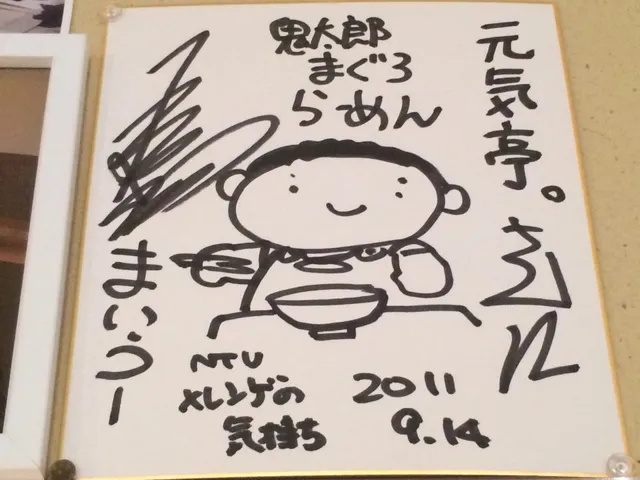 元気亭。
さん江
鬼太郎
まぐろ
らあめん
まいうー
NTV
メレンゲの
気持ち
2011
9.14